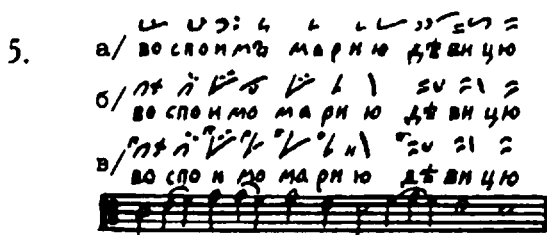 5. а/ воспоимъ марию дѣвицю
б/ воспоимо марию дѣвицю
в/ воспоимо марию дѣвицю